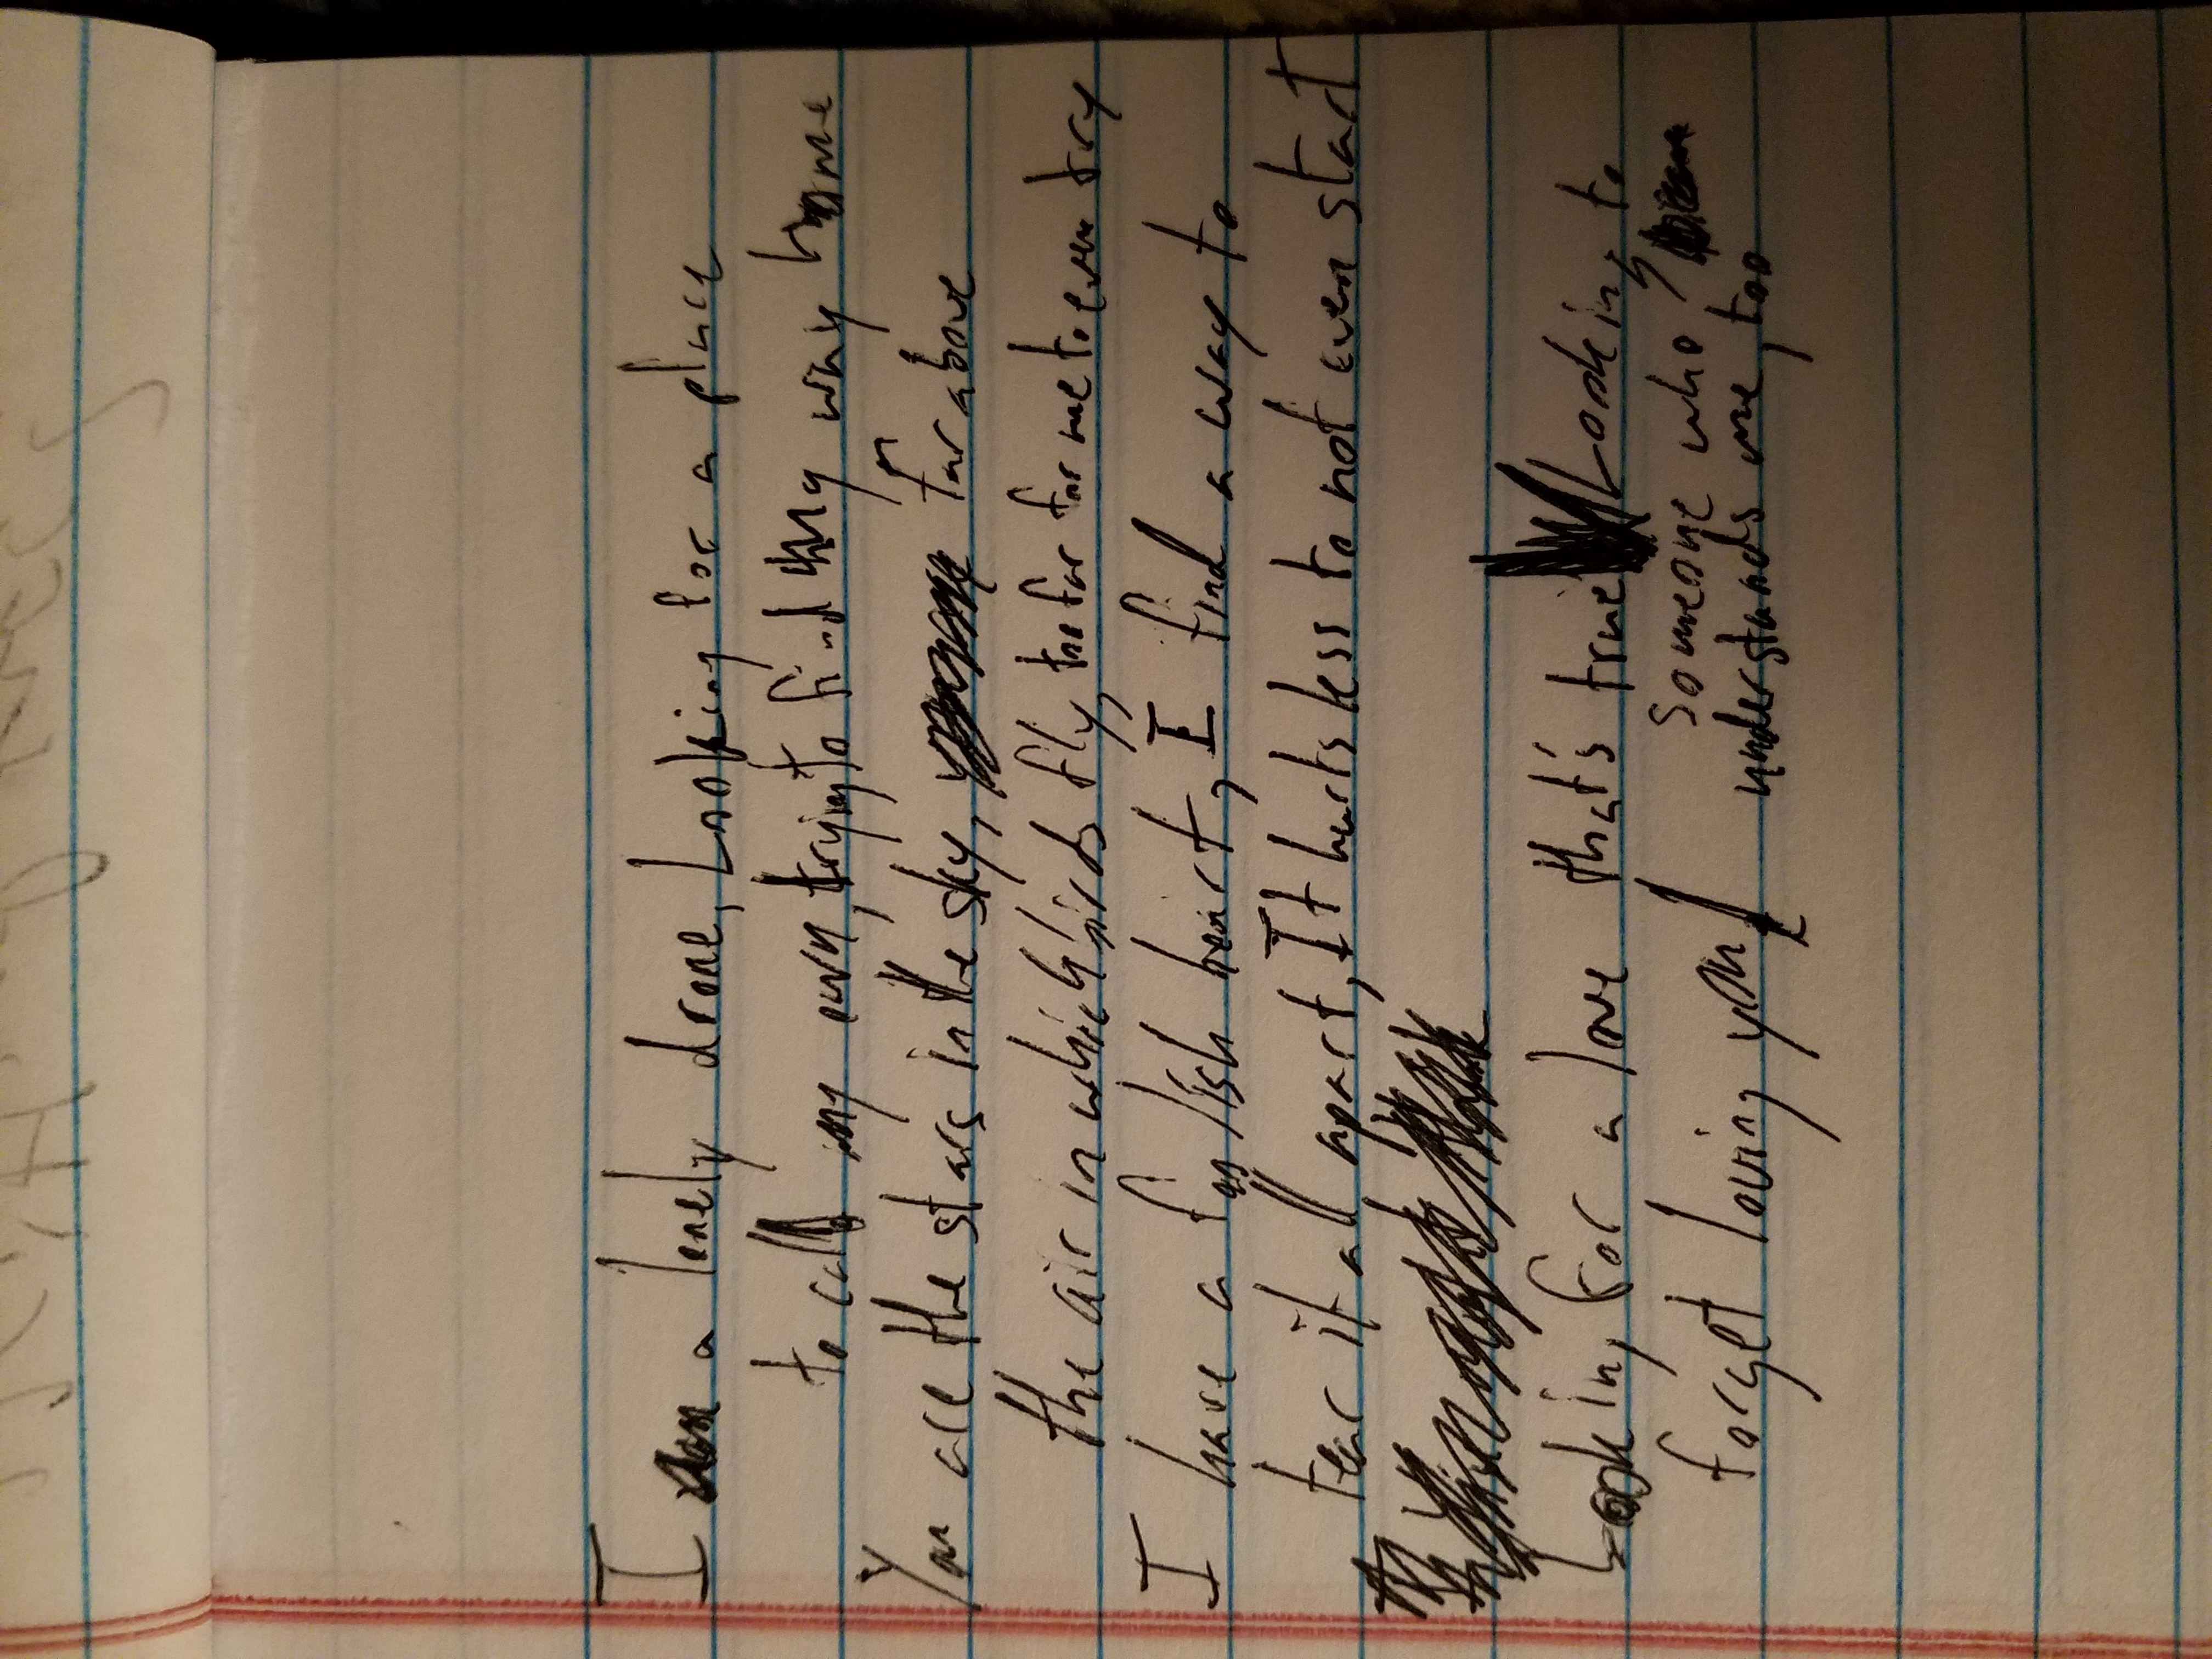 I am a lonely drone, Looking for a place
to call my own, trying to find my way home
You are the stars in the sky, far above
the air in which birds fly, too far for me to even try
I have a foolish heart, I find a way to
tear it all apart, It hurts less to not even start
Looking for a love that's true Looking to
forget loving you
someone who
understands me, too